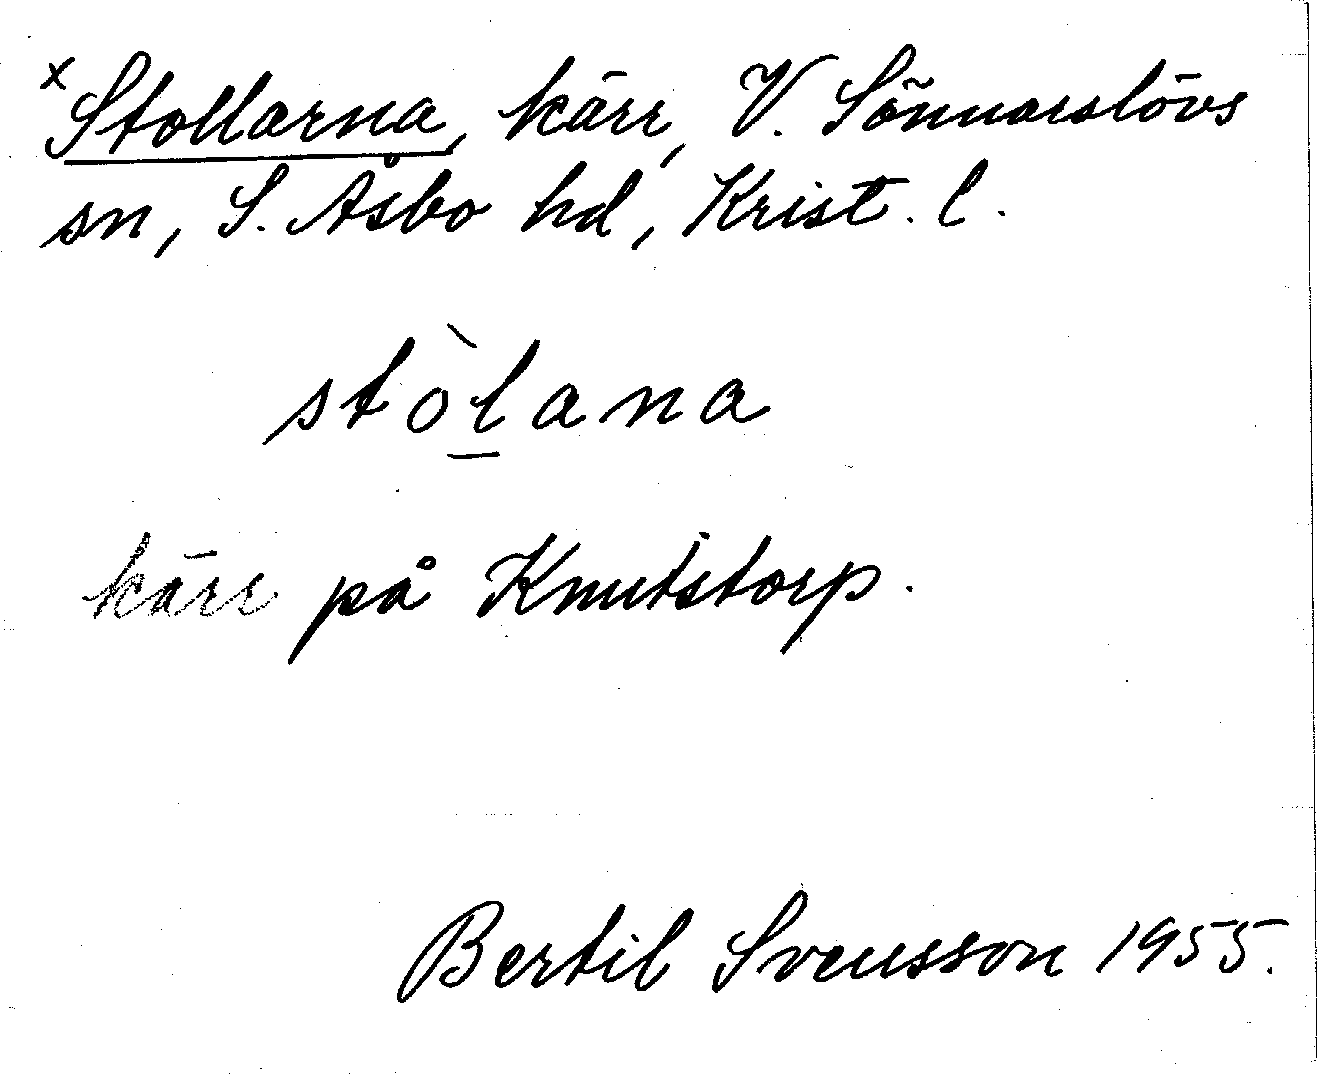 x Stollarna, kärr, V. Sönnarslövs
sn, S. Åsbo hd, Krist. l.
stòl̲ana
kärr på Knutstorp.
Bertil Svensson 1955.